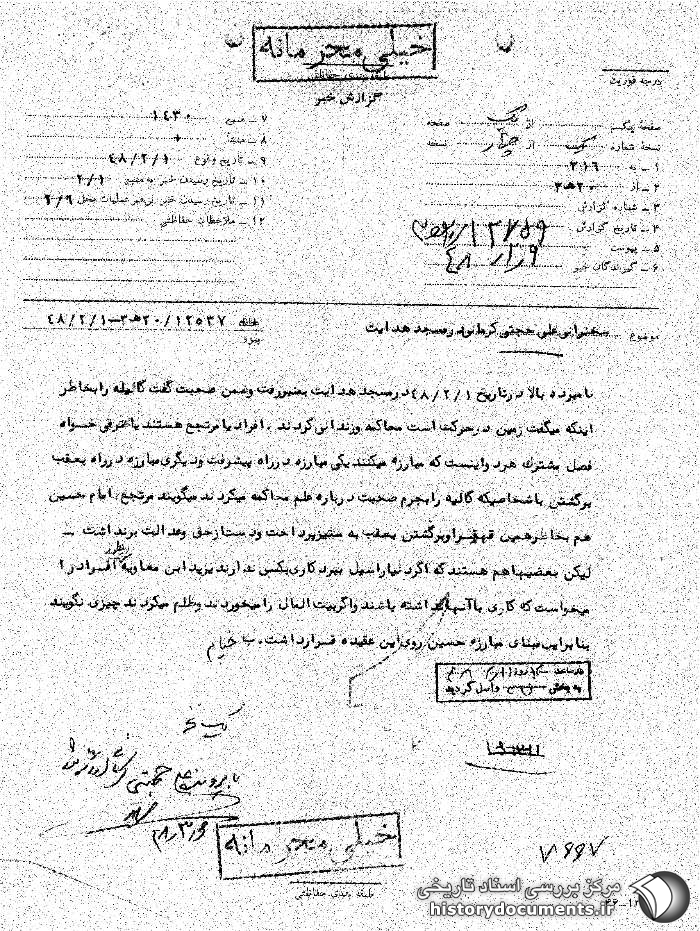 خیلی محرمانه
طبقه بندی حفاظتی
گزارش خبر
درجه فوریت
صفحه یک از یک صفحه
نسخه شماره یک از چهار نسخه
۱ ــ به ۳۱۶
۲ ــ از ۲۰ ه‍ ۳
۳ ــ شماره گزارش
۴ ــ تاریخ گزارش
۵ ــ پیوست
۶ ــ گیرندگان خبر
۷ ــ منبع ۱۴۳۰
۸ ــ منشاء
۹ ــ تاریخ وقوع ۴۸/۲/۱
۱۰ ــ تاریخ رسیدن خبر به منبع ۲/۱
۱۱ ــ تاریخ رسیدن خبر به رهبر عملیات محل ۲/۹
۱۲ ــ ملاحظات حفاظتی
موضوع سخنرانی علی حجتی کرمانی در مسجد هدایت
۲۰/۱۲۵۳۷ ه‍ ۳ ــ ۴۸/۲/۱
نامبرده بالا در تاریخ ۴۸/۲/۱ در مسجد هدایت بمنبر رفت و ضمن صحبت گفت گالیله را بخاطر
اینکه میگفت زمین در حرکت است محاکمه و زندانی کردند . افراد یا مرتجع هستند یا مترقی خواه
فصل مشترک هر دو اینست که مبارزه میکنند یکی مبارزه در راه پیشرفت و دیگری مبارزه در راه بعقب
برگشتن با شخاصیکه گالیه را بجرم صحبت درباره علم محاکمه میکردند میگویند مرتجع . امام حسین
هم بخاطر همین قهقرا و برگشتن بعقب به ستیز پرداخت و دست از حق و عدالت برنداشت ــ
لیکن بعضیها هم هستند که اگر دنیا را سیل ببرد کاری بکسی ندارند یزید ابن معاویه اینطور افراد را
میخواست که کاری با آنها نداشته باشند و اگر بیت المال را میخوردند و ظلم میکردند چیزی نگویند
بنابراین مبنای مبارزه حسین روی این عقیده قرار داشت . ب خیام
به بخش واصل گردید
با پرونده حجتی کرمانی
۴۸/۳/
۷۶۶۷
خیلی محرمانه
طبقه بندی حفاظتی
مرکز بررسی اسناد تاریخی
historydocuments.ir